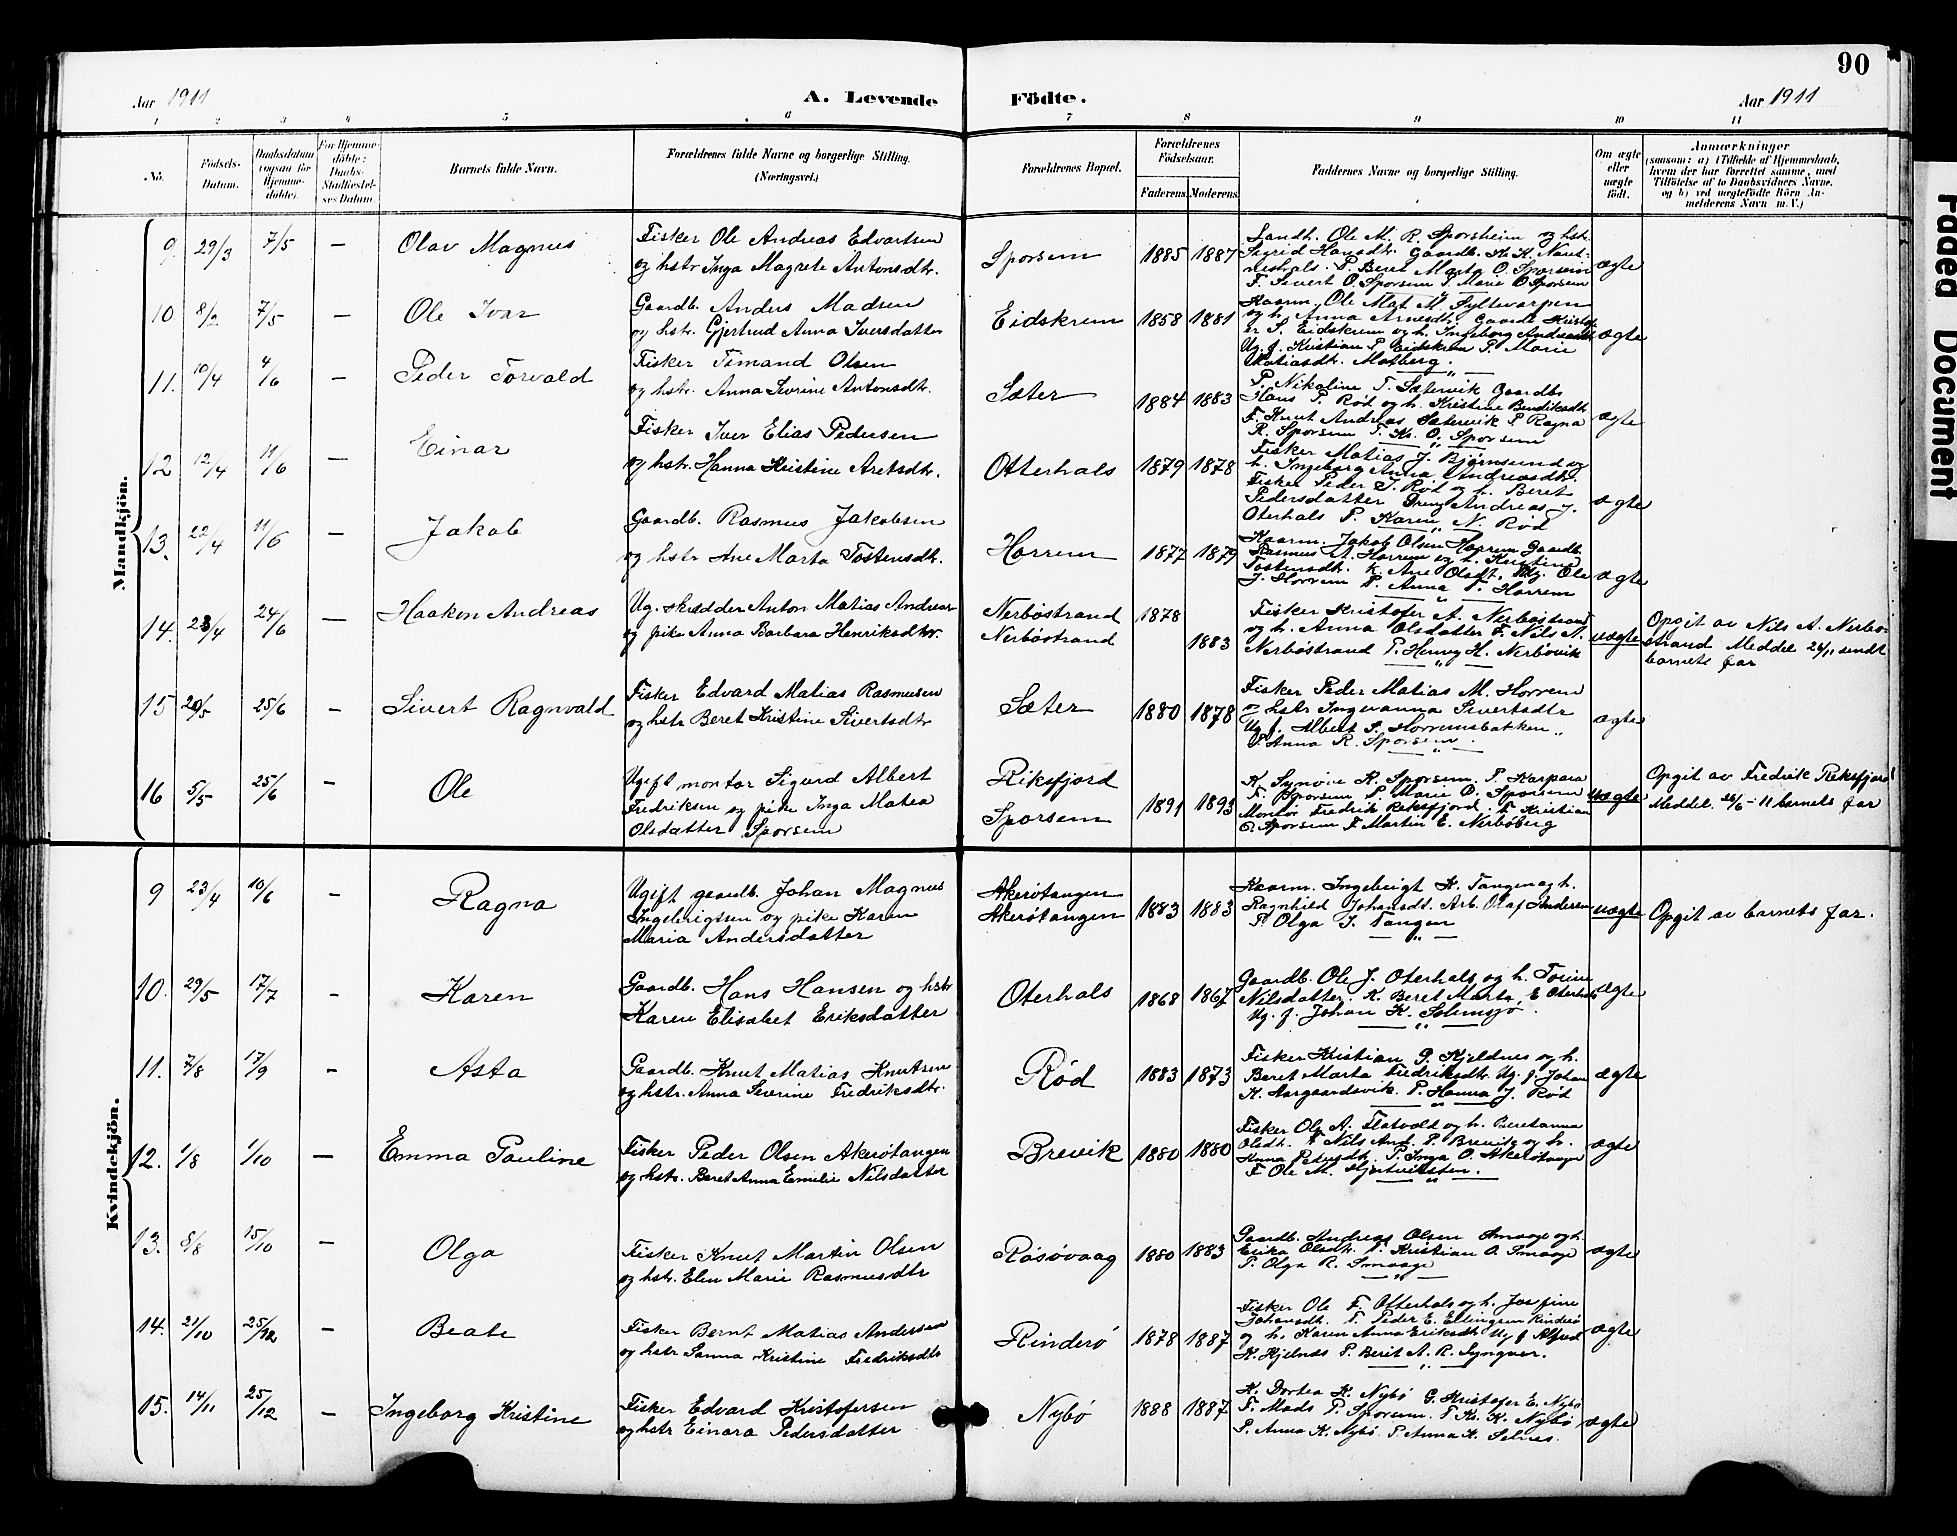 90
Aar 1911
A. Levende
Födte.
Aar 1911
1 2 3 4 5 6 7 8 9 10 11
No.
Födsels-
Datum.
Daabsdatum
(ogsaa for
Hjemme-
døbte).
For Hjemme-
döbte:
Daabs-
Stadfæstel-
ses Datum.
Barnets fulde Navn.
Forældrenes fulde Navne og borgerlige Stilling.
(Næringsvei.)
Forældrenes Bopæl.
Forældrenes
Födselsaar.
Faderens. Moderens.
Faddernes Navne og borgerlige Stilling.
Om ægte
eller
uægte
födt.
Anmærkninger
(saasom: a) i Tilfælde af Hjemmedaab,
hvem der har forrettet samme, med
Tilföielse af to Daabsvidners Navne,
og b) ved uægtefödte Börn An-
melderens Navn m. V.)
Mandkjön.
9. 29/3 7/5 — Olav Magnus
Fisker Ole Andreas Edvartsen
og hstr Inga Magrete Antonsdtr.
Sporsem 1885 1887
Landh. Ole M. R. Sporsheim og hstr.
Sigrid Hansdtr. Gaardb. K. K. Naut-
neshals. P. Beret Marta O. Sporsem
F. Sivert O. Sporsem P. Marie O. Sporsem
ægte
10 8/2 7/5 — Ole Ivar
Gaardb. Anders Madsen
og hstr. Gjertrud Anna Iversdatter
Eidskrem 1858 1881
Kaarm. Ole Mat. M. Syltevarpen
og h. Anna Arnesdtr. Gaardb. Kristof-
er S. Eidskrem og h. Ingeborg Andreasdtr.
Ug. f. Kristian P. Eidskrem P. Marie
Matiasdtr. Malberg.
ægte
11. 10/4 4/6 — Peder Torvald
Fisker Timand Olsen
og hstr. Anna Sivrine Antonsdtr.
Sæter 1884 1883
P. Nikoline T. Sætervik Gaardb.
Hans P. Rød og h. Kristine Bendiksdtr
F. Knut Andreas Sætervik P. Ragna
R. Sporsem F. Kr. O. Sporsem
ægte
12 12/4 11/6 — Einar
Fisker Iver Elias Pedersen
og hstr. Hanna Kristine Aretsdtr.
Otterhals 1879 1878
Fisker Matias J. Bjørnsund og
h. Ingeborg Anna Andreasdtr.
Fisker Peder S. Rød og h. Beret
Pedersdatter Dreng Andreas J.
Oterhals P. Karen N. Rød
ægte
13. 22/4 11/6 — Jakob
Gaardb. Rasmus Jakobsen
og hstr Ane Marta Tostensdtr.
Horrem 1877 1879
Kaarm. Jakob Olsen Horrem Gaardb.
Rasmus A. Horrem og h. Kristina
Tostensdtr. K. Ane Olsdt. Ug. Ole
J. Horrem P. Anna T. Horrem
ægte
14. 23/4 24/6 — Haakon Andreas
Ug. skrædder Anton Matias Andreas-
og pike Anna Barbara Henriksdtr.
Nerbøstrand 1878
Nerbøstrand 1883
Fisker Kristofer A. Nerbøstrand
og h. Anna Olsdatter F. Nils A.
Nerbøstrand P. Henny H. Nerbøvik
uægte
Opgit av Nils A. Nerbø-
strand Meddel. 26/11 sendt
barnets far
15 20/5 25/6 — Sivert Ragnvald
Fisker Edvard Matias Rasmusen
og hstr Beret Kristine Sivertsdtr
Sæter 1880 1878
Fisker Peder Matias M. Horrem
og hstr Ingvanna Sivertsdtr
Ug f. Albert S. Horremsbakken
P. Anna R. Sporsem
ægte
16 5/5 25/6 — Ole
Ugift montør Sigurd Albert
Fredriksen og pike Inga Matea
Olsdatter Sporsem
Riksfjord
Sporsem 1891 1893
K. Synøve K. Sporsem. P. Kaspara
F. Sporsem P. Marie O. Sporsem
Montør Fredrik Reksfjord. F. Kristian
O. Sporsem F. Martin E. Nerbøberg
uægte
Opgit av Fredrik Reksfjord
Meddel. 26/6-11 barnets far
Kvindekjön.
9 23/4 10/6 — Ragna
Ugift gaardb. Johan Magnus
Ingebrigtsen og pike Karen
Maria Andersdatter
Akerøtangen
Akerøtangen 1883 1883
Kaarm. Ingebrigt K. Tangen og h.
Ragnhild Johansdt. Arb. Olaf Andersen
P. Olga J. Tangen
uægte
Opgit av barnets far.
10. 29/5 17/7 — Karen
Gaardb. Hans Hansen og hstr
Karen Elisabet Eriksdatter
Oterhals 1868 1867
Gaardb. Ole J. Oterhals og h. Torine
Nilsdatter. K. Beret Marta E. Oterhals
Ug. f. Johan K. Solemsjø.
ægte
11. 7/8 17/9 — Asta
Gaardb. Knut Matias Knutsen
og hstr. Anna Severine Fredriksdtr.
Rød 1883 1873
Fisker Kristian P. Kjeldnes og h.
Beret Marta Fredriksdtr. Ug. f. Johan
K. Aargaardsvik. P. Hanna J. Rød
ægte
12. 1/8 1/10 — Emma Pauline
Fisker Peder Olsen Akerøtangen
og hstr. Beret Anna Emilie Nilsdatter
Brevik 1880 1880
Fisker Ole A. Flatvold og h. Beretanna
Olsdtr. F. Nils And. P. Brevik og h.
Anna Petersdtr. P. Inga O. Akerøtangen
F. Ole M. Hjertviksten.
ægte
13. 8/8 15/10 — Olga
Fisker Knut Martin Olsen
og hstr. Elen Marie Rasmusdtr
Røsøvaag 1880 1883
Gaardb. Andreas Olsen Smaage og h.
Erika Olsdtr. F. Kristian A. Smaage
P. Olga R. Smaage
ægte
14. 21/10 25/12 — Beate
Fisker Bernt Matias Andersen
og hstr Sanna Kristine Fredriksdtr
Rinderø 1878 1887
Fisker Ole F. Otterhals og h. Josefine
Johansdt. F. Peder E. Ellingsen Rinderø
og h. Karen Anna Eriksdtr. Ug f. Alfred
K. Hjelnes P. Berit A. R. Syngver.
ægte
15. 14/11 25/12 — Ingeborg Kristine
Fisker Edvard Kristofersen
og hstr Einara Pedersdatter
Nybø 1888 1887
K. Dortea K. Nybø G. Kristofer E. Nybø
F. Mads P. Sporsem. F. Kr. K. Nybø
P. Anna K. Nybø. P. Anna K. Selnes.
ægte
Faded Document